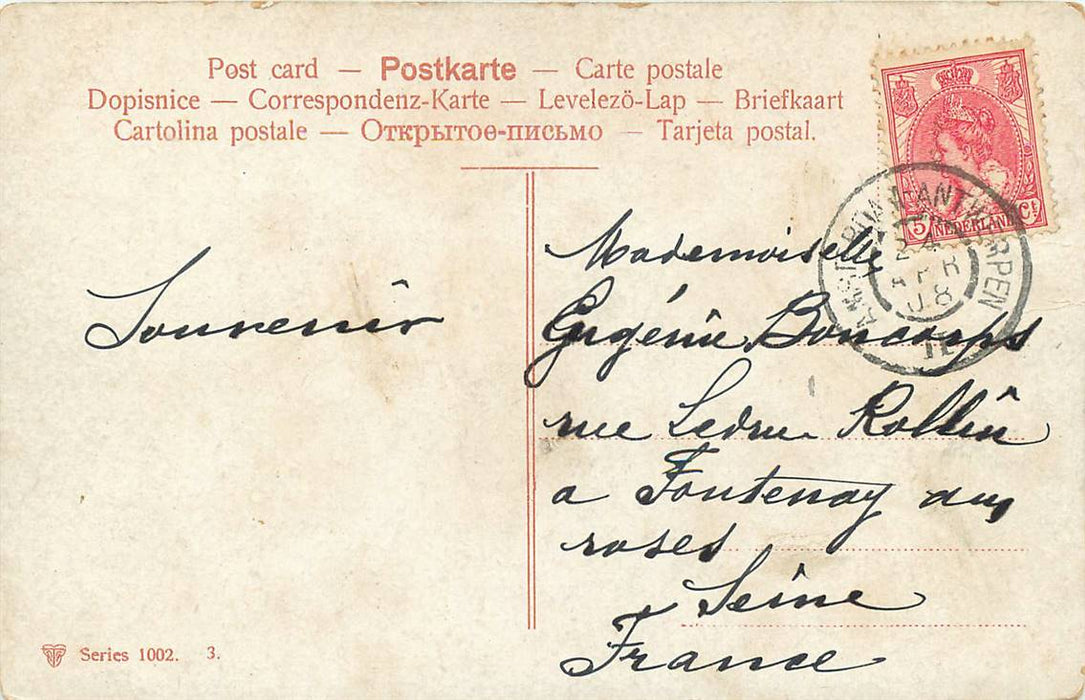 Post card — Postkarte — Carte postale
Dopisnice — Correspondenz-Karte — Levelező-Lap — Briefkaart
Cartolina postale — Открытое-письмо — Tarjeta postal.
5 NEDERLAND Ct
AMSTERDAM-ANTWERPEN
24
APR
08
Souvenir
Mademoiselle
Eugénie Boncorps
rue Ledru Rollin
a Fontenay aux
roses
Seine
France
Series 1002. 3.